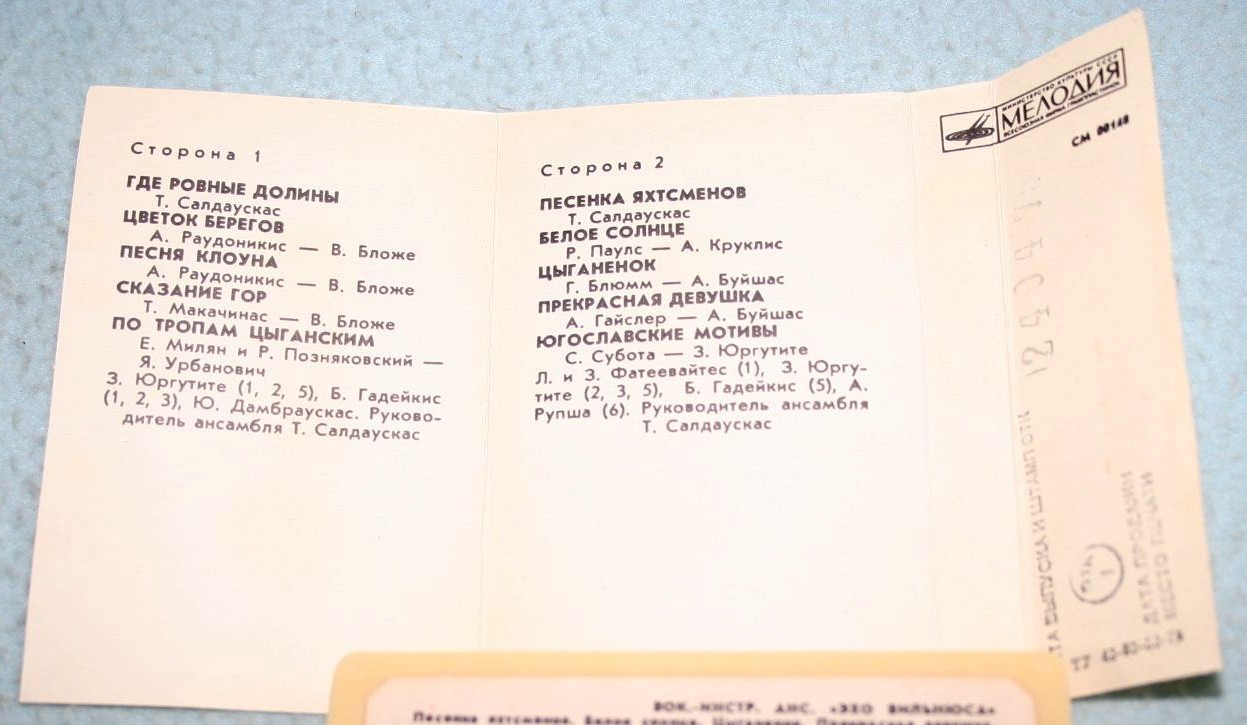 Сторона 1
ГДЕ РОВНЫЕ ДОЛИНЫ
Т. Салдаускас
ЦВЕТОК БЕРЕГОВ
А. Раудоникис — В. Бложе
ПЕСНЯ КЛОУНА
А. Раудоникис — В. Бложе
СКАЗАНИЕ ГОР
Т. Макачинас — В. Бложе
ПО ТРОПАМ ЦЫГАНСКИМ
Е. Милян и Р. Позняковский —
Я. Урбанович
З. Юргутите (1, 2, 5), Б. Гадейкис
(1, 2, 3), Ю. Дамбраускас. Руково-
дитель ансамбля Т. Салдаускас
Сторона 2
ПЕСЕНКА ЯХТСМЕНОВ
Т. Салдаускас
БЕЛОЕ СОЛНЦЕ
Р. Паулс — А. Круклис
ЦЫГАНЕНОК
Г. Блюмм — А. Буйшас
ПРЕКРАСНАЯ ДЕВУШКА
А. Гайслер — А. Буйшас
ЮГОСЛАВСКИЕ МОТИВЫ
С. Субота — З. Юргутите
Л. и З. Фатеевайтес (1), З. Юргу-
тите (2, 3, 5), Б. Гадейкис (5), А.
Рупша (6). Руководитель ансамбля
Т. Салдаускас
МИНИСТЕРСТВО КУЛЬТУРЫ СССР
МЕЛОДИЯ
ВСЕСОЮЗНАЯ ФИРМА ГРАМПЛАСТИНОК
СМ 00148
ТА ВЫПУСКА И ШТАМП ОТК
ДАТА ПРОДАЖИ
МЕСТО ПЕЧАТИ
ВОК.-ИНСТР. АНС. «ЭХО ВИЛЬНЮСА»
Песенка яхтсменов. Белое солнце. Цыганенок. Прекрасная девушка